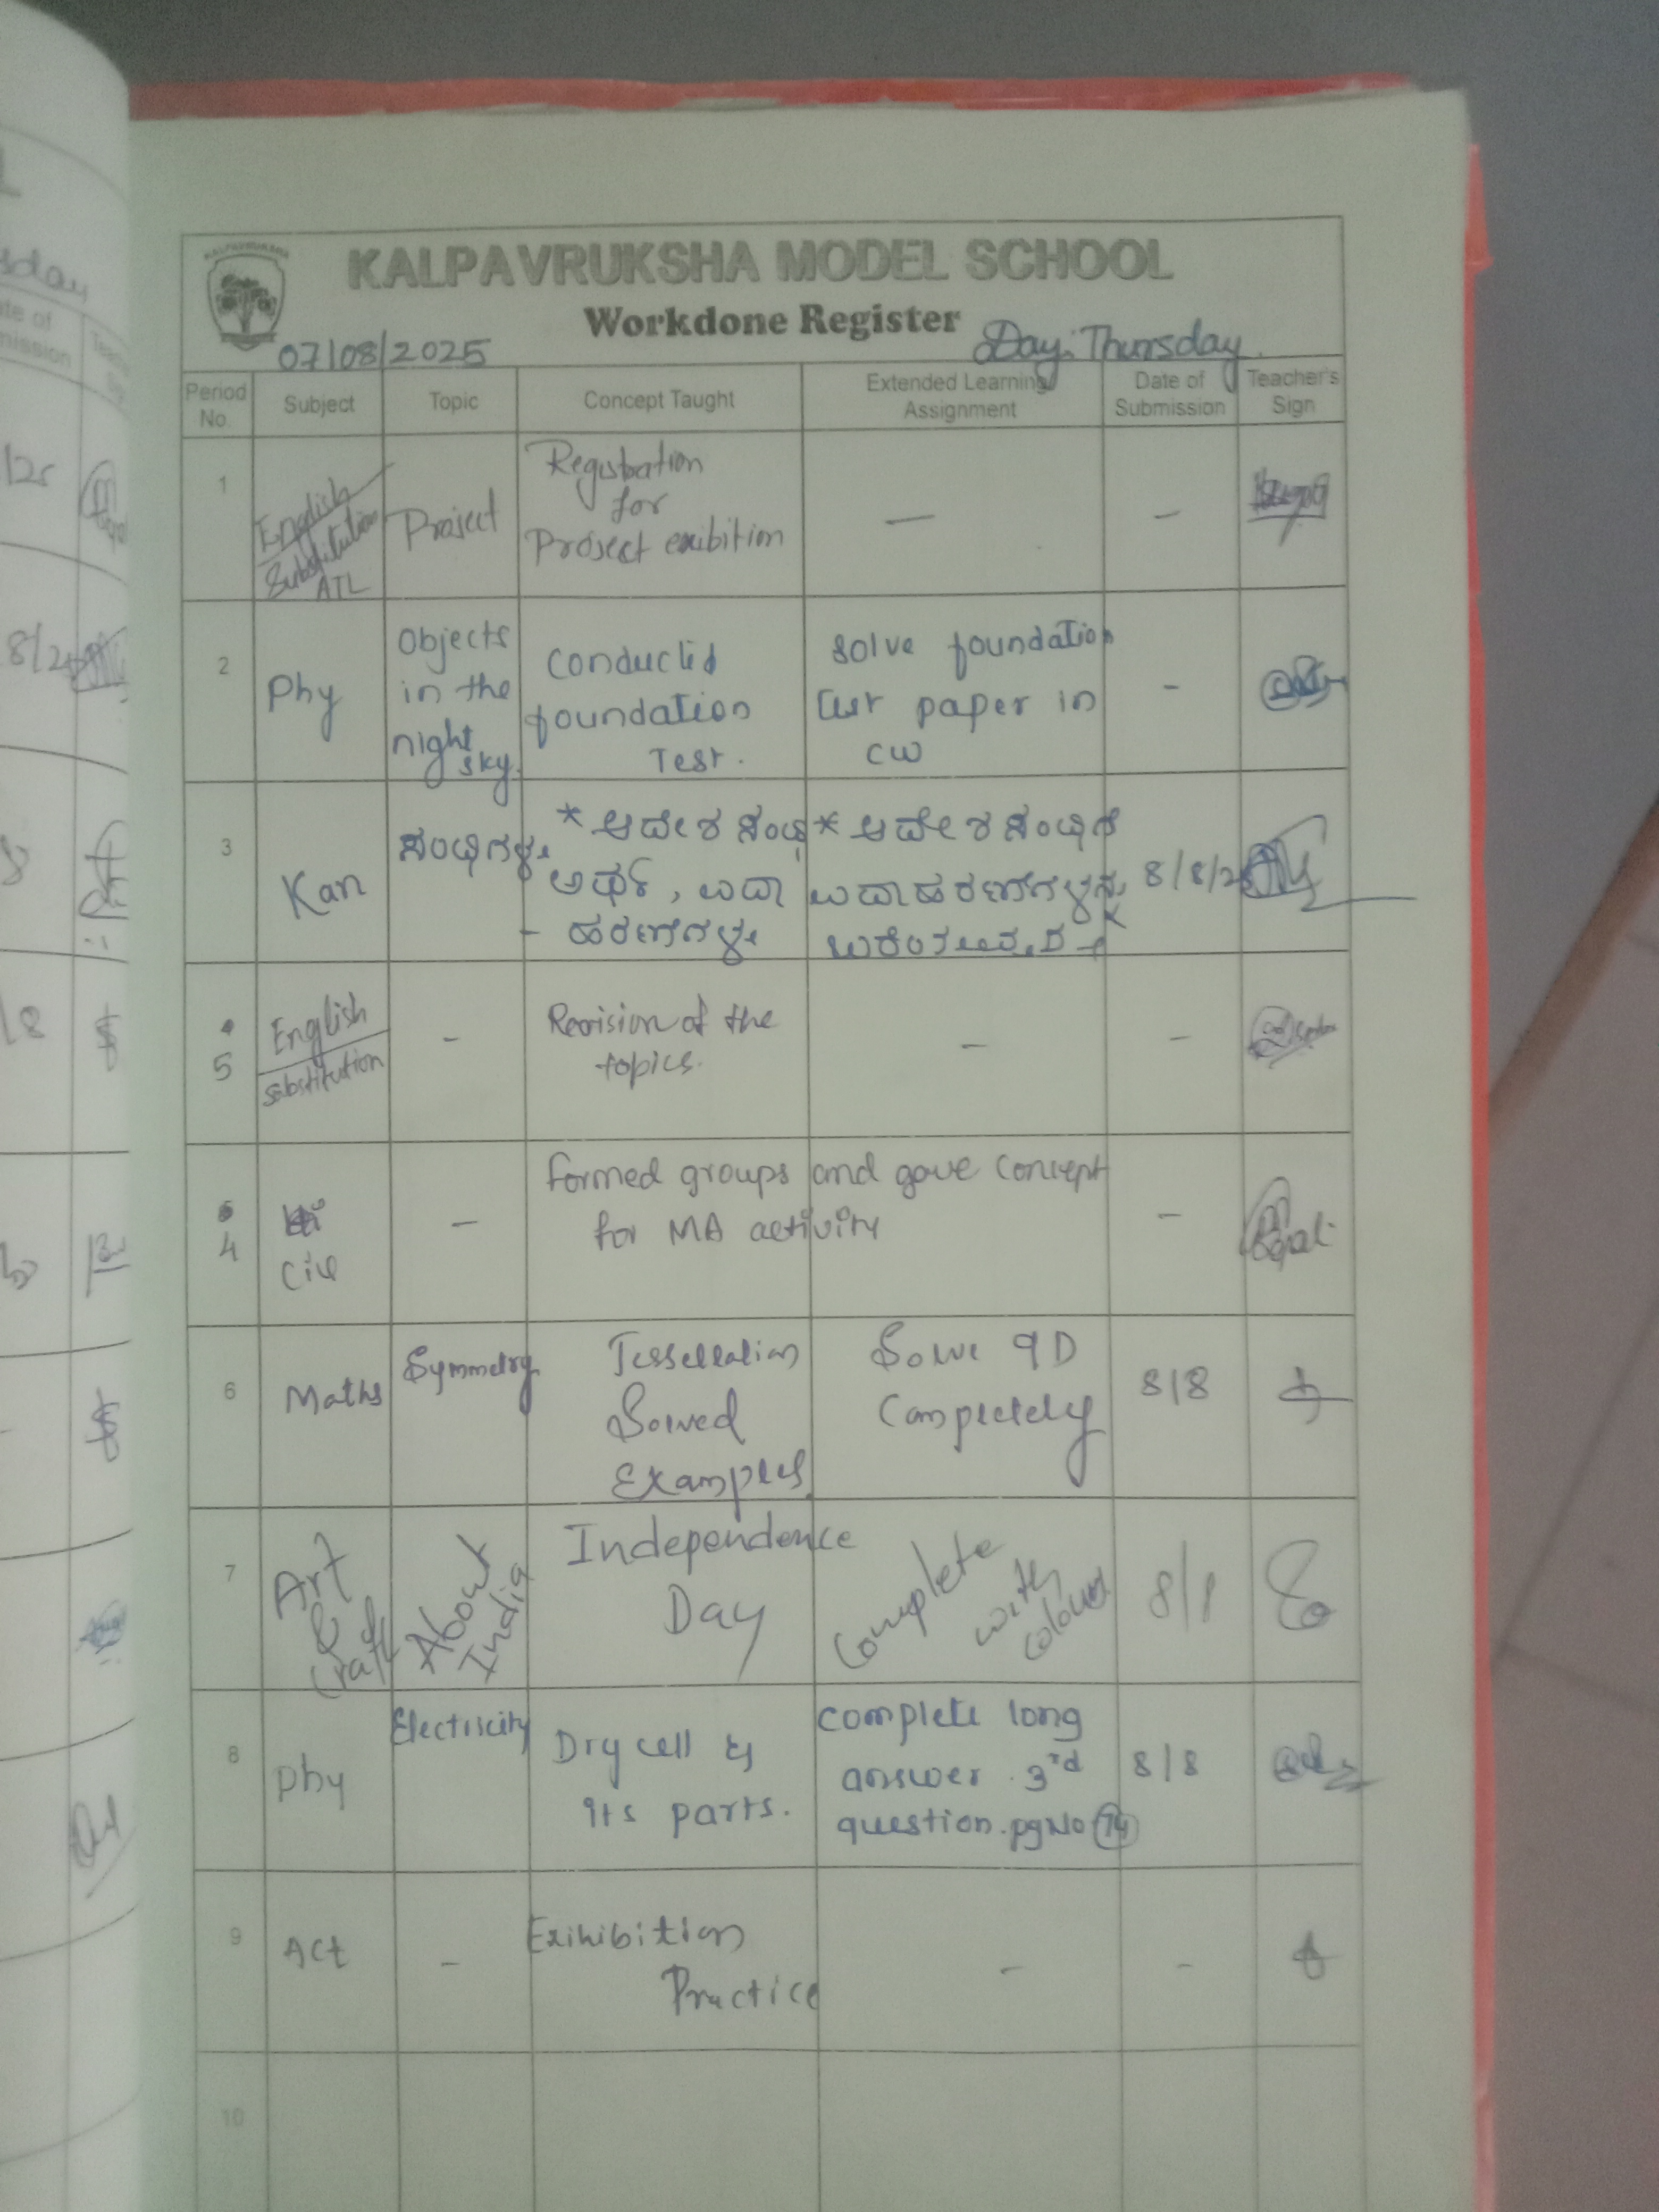 KALPAVRUKSHA MODEL SCHOOL
Workdone Register
07/08/2025
Day: Thursday.
Period No.
Subject
Topic
Concept Taught
Extended Learning Assignment
Date of Submission
Teacher's Sign
1
English
Substitution
ATL
Project
Registration
for
Project exibition
—
–
2
Phy
Objects
in the
night
sky.
Conducted
foundation
Test.
Solve foundation
test paper in
CW
–
3
Kan
ಸಂಧಿಗಳು
* ಆದೇಶ ಸಂಧಿ
ಅರ್ಥ, ಉದಾ
- ಹರಣೆಗಳು
* ಆದೇಶ ಸಂಧಿಗೆ
ಉದಾಹರಣೆಗಳನ್ನು
8/8/25
5
English
Substitution
–
Revision of the
topics.
–
–
4
Civ
–
formed groups and gave concept
for MA activity
–
6
Maths
Symmetry
Tessellation
Solved
Examples.
Solve 9D
Completely
8/8
7
Art
&
Craft
About
India
Independence
Day
Complete
with
colours
8/8
8
Phy
Electricity
Dry cell &
its parts.
complete long
answer. 3rd
question. pg No 74
8/8
9
Act
–
Exihibition
Practice
–
–
10